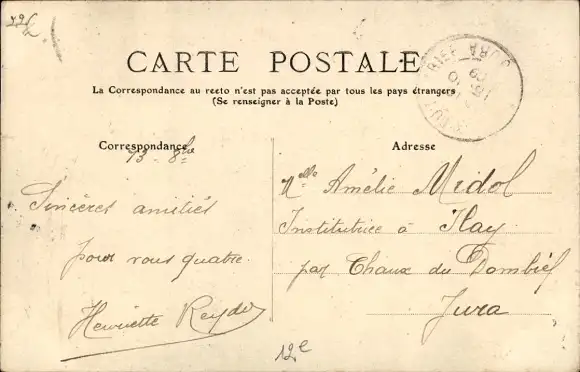 CARTE POSTALE
La Correspondance au recto n'est pas acceptée par tous les pays étrangers
(Se renseigner à la Poste)
Correspondance
Adresse
13 - 8bre
Sincères amitiés
pour vous quatre
Henriette
Melle Amélie Midol
Institutrice à Ilay
par Chaux du Dombief
Jura
12e